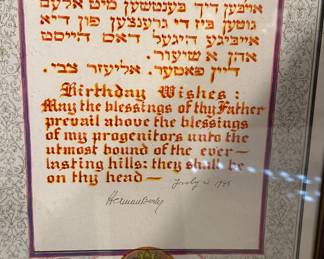 אייבען דיך בענטשען מיט אלעם
גוטען ביז די גרענצען פון דיא
אייביגע היגעל דאס הייסט
אהן א שיעור.
דיין פאטער. אליעזר צבי.
Birthday Wishes:
May the blessings of thy Father
prevail above the blessings
of my progenitors unto the
utmost bound of the ever-
lasting hills: they shall be
on thy head —
1945
Herman